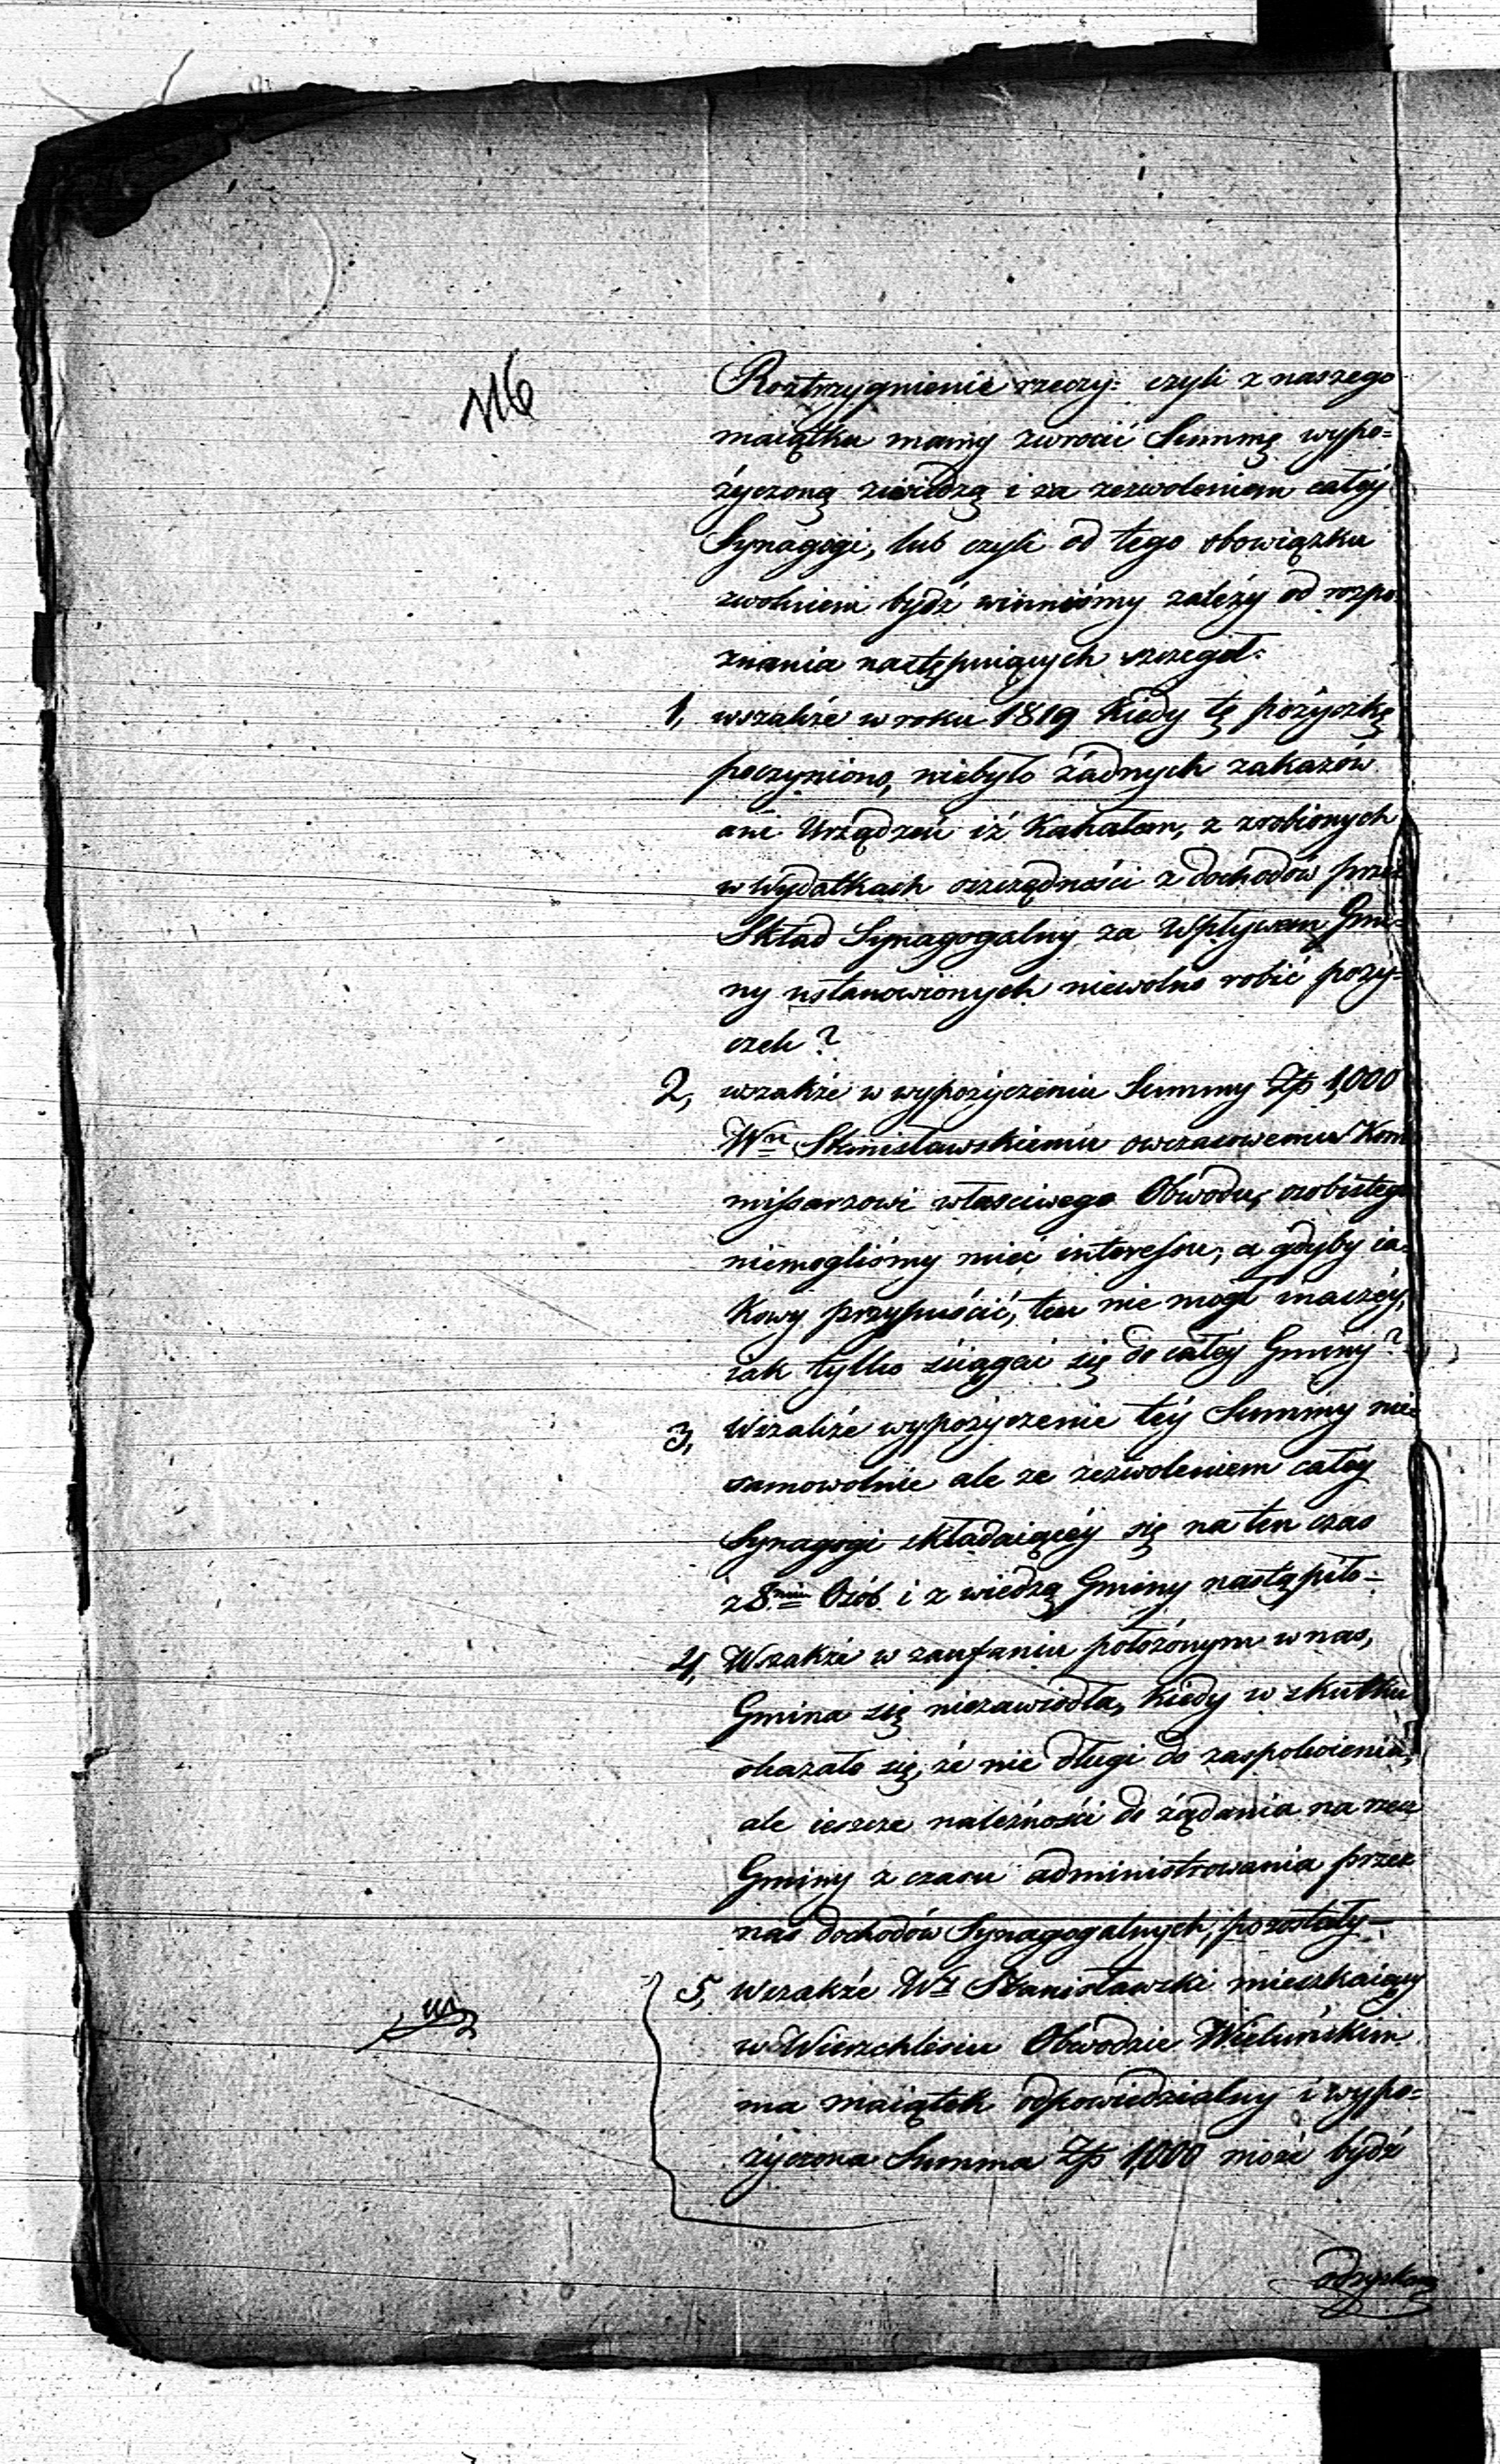 116
Roztrzygnienie rzeczy: czyli z naszego
maiątku mamy zwrocić Summę wypo=
życzoną ziwiedzą i za zezwoleniem całéy
Synagogi, lub czyli od tego obowiązku
zwolnieni bydź winniśmy zależy od rozpo
znania następuiących szczegół:
1, wszakże w roku 1819 Kiedy tę pożyczkę
poczyniono, niebyło żadnych zakazów
ani Urządzeń iż Kahałom, z zrobionych
w Wydatkach oszczędności z dochodów przez
Skład Synagogalny za Wpływem Gmi=
ny ustanowionych niewolno robić poży=
czek?
2, wszakże w wypożyczeniu Summy Złp 1,000
Wu Stanisławskiemu owczasowemu Kom
missarzowi właściwego Obwodu, osobistego
niemogliśmy mieć interessu, a gdyby ia=
Kowy przypuścić, ten nie mogł inaczéy,
iak tylko ściągać się do całey Gminy?
3, Wszakże wypożyczenie téy Summy nie=
samowolnie ale ze zezwoleniem całéy
Synagogi składaiącéy się na ten czas
z 8miu Osób i z wiedzą Gminy nastąpiło—
4, Wszakże w zaufaniu położonym w nas,
Gmina się niezawiodła, Kiedy w skutku
okazało się, że nie długi do zaspokoienia,
ale ieszcze należności do żądania na rzecz
Gminy z czasu administrowania przez
nas dochodów Synagogalnych, pozostały—
5, Wszakże Wy Stanisławski mieszkaiący
w Wierzchlesiu Obwodzie Wieluńskim
ma maiątek odpowiedzialny i wypo=
życzona Summa Złp 1,000 może bydź
odzyskaną